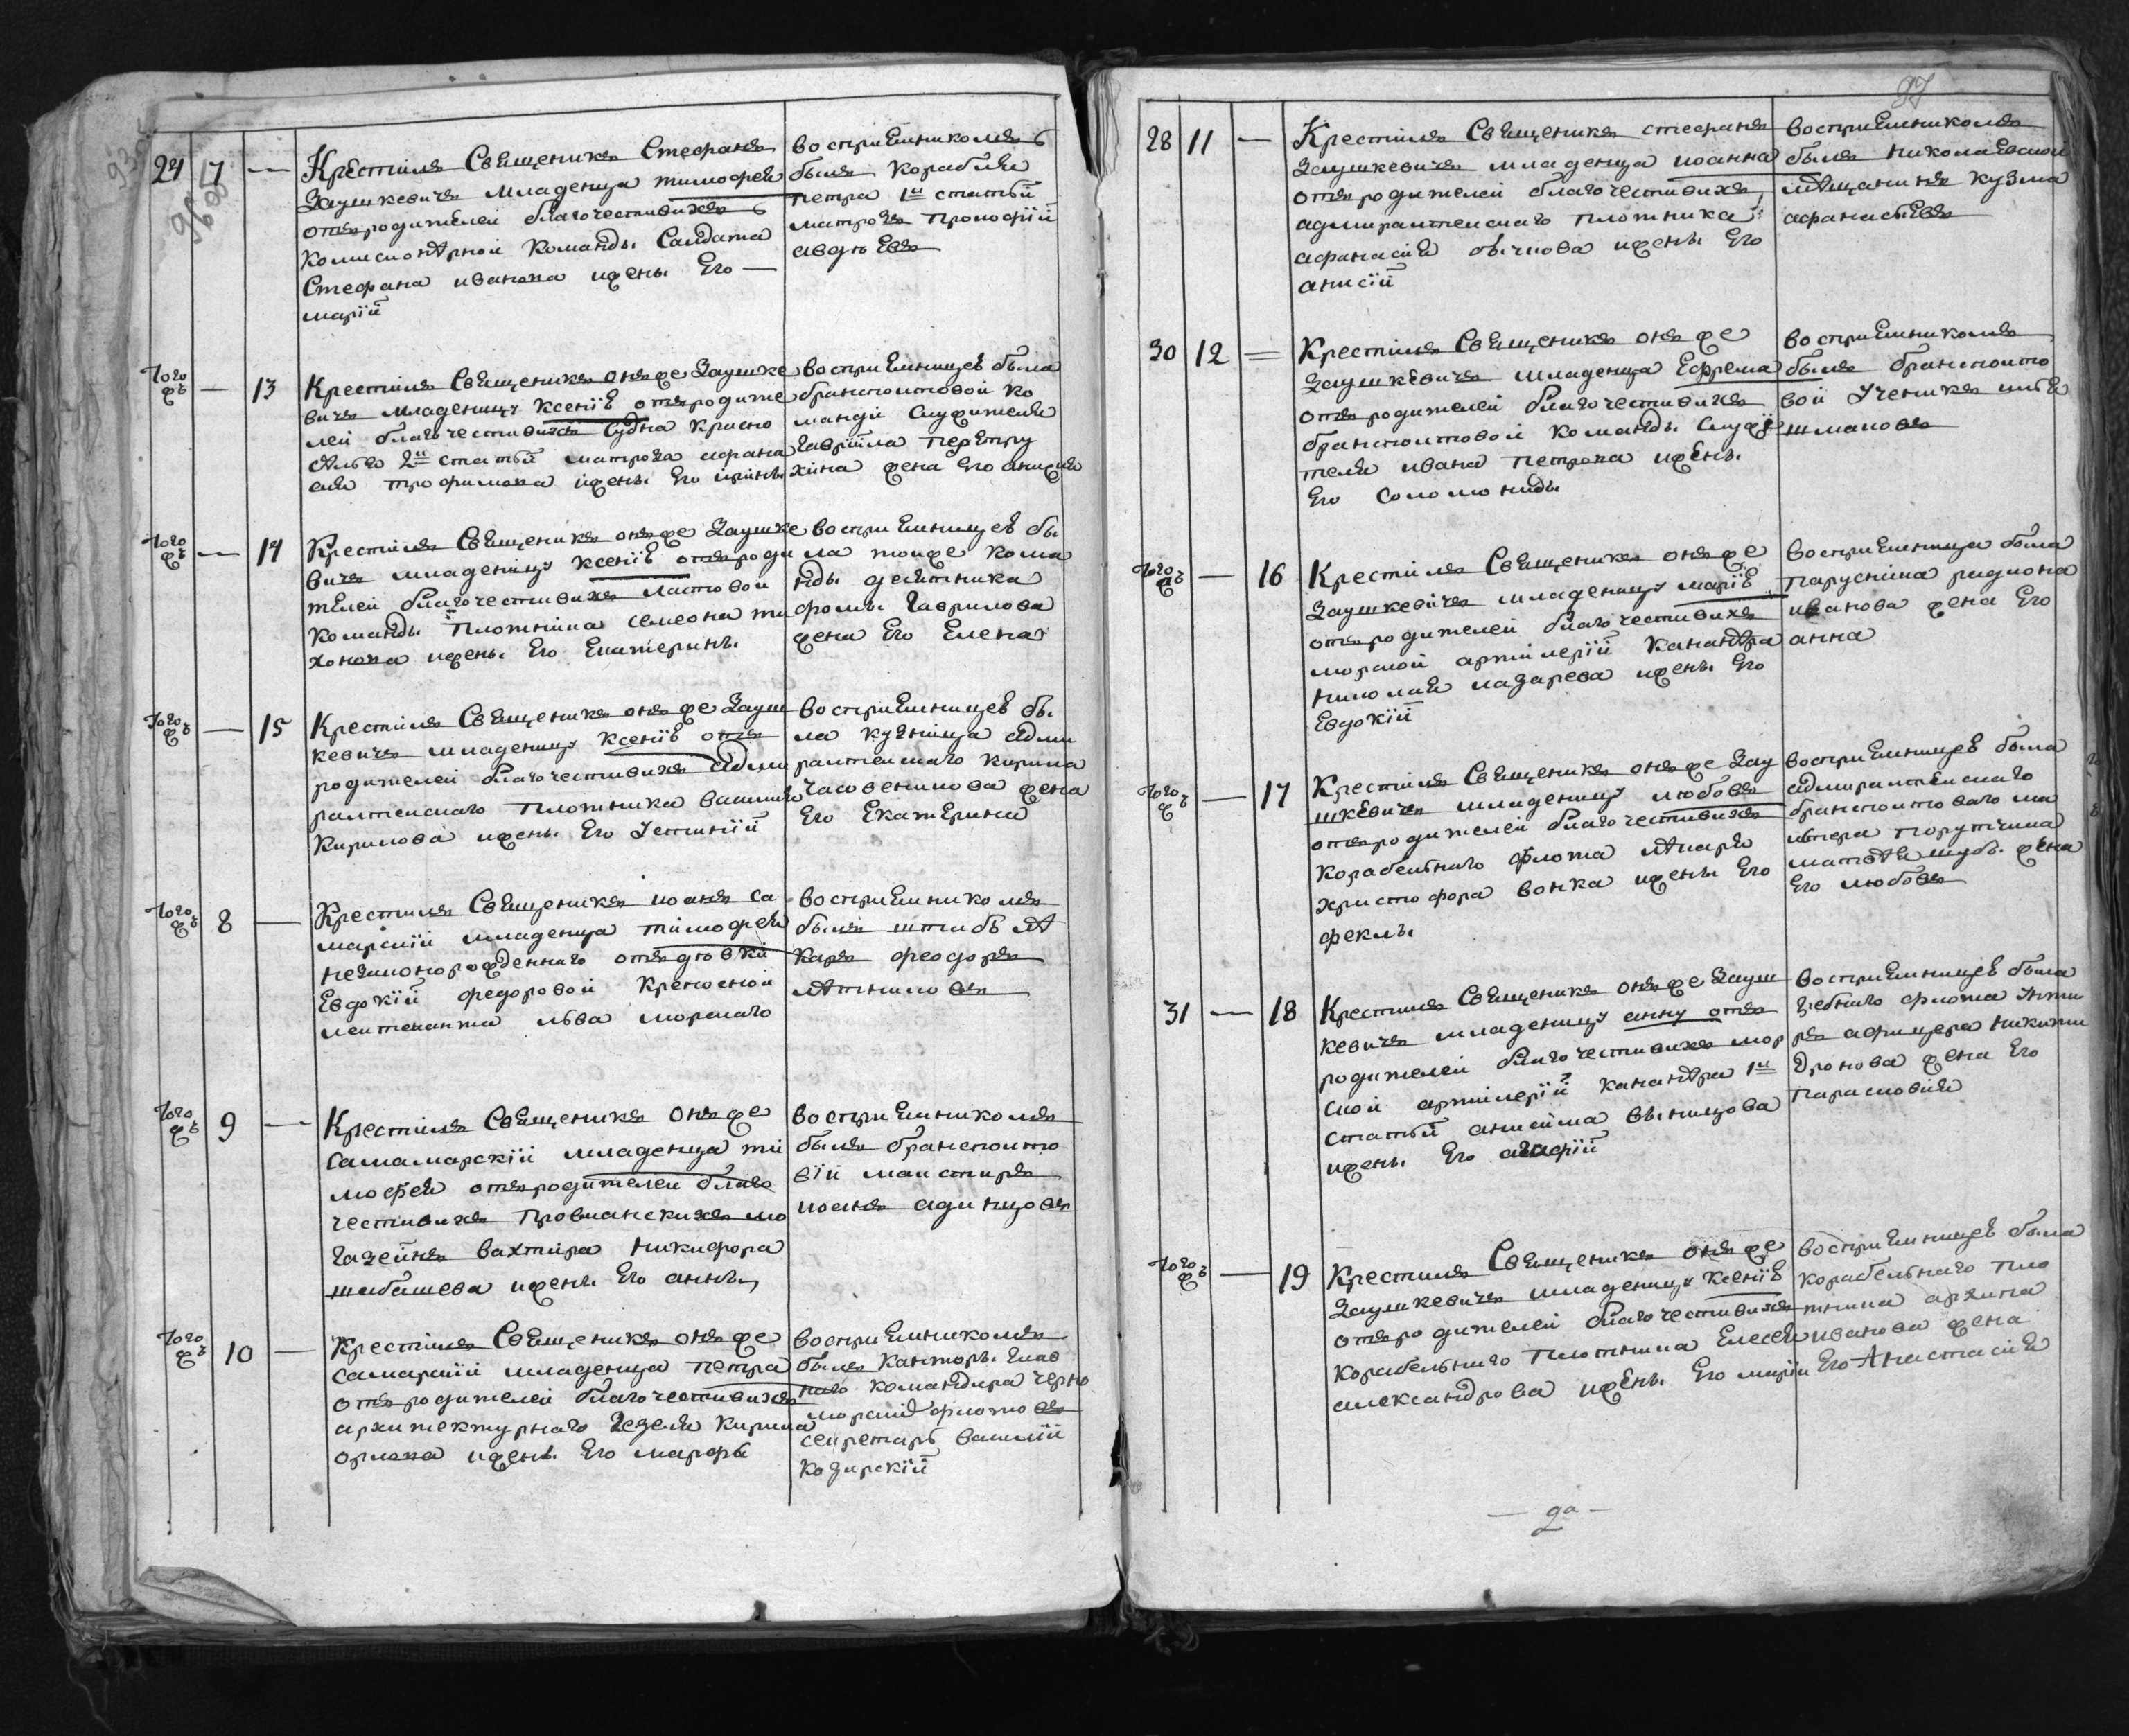 97
24 7 — Крестилъ Священикъ Стефанъ
Заушкевичъ младенца тимофея
отъ родителей благочестивихъ
комисионѣрной команды Салдата
Стефана иванова и жены Его —
маріи
воспріемникомъ
былъ корабля
петра 1й статьи
матрозъ прокофій
авдѣевъ
того жъ — 13 Крестилъ Священикъ онъ же Заушке
вичъ младеницу ксенію отъ родите
лей благочестивихъ Судна красно
селья 2й статьи матроза афана
сия трофимова и жены Его ирины
воспріемницею была
бранспоитовой ко
манди служителя
гавріила
хина жена Его
того жъ — 14 Крестилъ Священикъ онъ же Заушке
вичъ младеницу ксенію отъ роди
телей благочестивихъ ластовой
команды плотника семеона ти
хонова и жены Его Екатерины
воспріемницею бы
ла тоиже кома
нды десятника
фомы гаврилова
жена Его Елена
того жъ — 15 Крестилъ Священикъ онъ же Зауш
кевичъ младеницу ксенію отъ
родителей благочестивихъ адми
ралтескаго плотника василия
Кирилова и жены Его Устинии
воспріемницею бы
ла кузнѣца адми
ралтескаго кирила
часовеникова жена
Его Екатерина
того жъ 8 — Крестилъ Священикъ иоанъ са
марскій младенца тимофея
незаконорожденнаго отъ дѣвки
Евдокіи федоровой крепосной
леитенанта льва морскаго
воспріемникомъ
былъ штабъ лѣ
каръ феодоръ
лѣтниковъ
того жъ 9 — Крестилъ Священикъ онъ же
самамарскій младенца ти
мофея отъ родителей благо
честивихъ провианскихъ ма
газейнъ вахтира никифора
шабашева и жены Его анны
воспріемникомъ
былъ бранспоито
вій маистиръ
иоанъ адинцовъ
того жъ 10 — Крестилъ Священикъ онъ же
самарскій младенца петра
отъ родителей благочестивихъ
архитектурнаго гезеля кирила
орлова и жены Его марфы
воспріемникомъ
былъ канторы глав
наго командира черно
морскихъ флотовъ
секретаръ василій
козирскій
28 11 — Крестилъ Священикъ стефанъ
Заушкевичъ младенца иоанна
отъ родителей благочестивихъ
адмиралтескаго плотника
афанасія бычкова и жены Его
анисіи
воспріемникомъ
былъ николаевской
мѣщанинъ кузма
афанасьевъ
30 12 — Крестилъ Священикъ онъ же
Заушкевичъ младенца Ефрема
отъ родителей благочестивихъ
бранспоитовой команды служи
теля ивана петрова и жены
Его соломониды
воспріемникомъ
былъ бранспоито
вой ученикъ илья
шмаковъ
того жъ — 16 Крестилъ Священикъ онъ же
Заушкевичъ младеницу марію
отъ родителей благочестивихъ
морской артилеріи канонѣра
николая лазарева и жены Его
Евдокіи
воспріемница была
парусника радиона
иванова жена Его
анна
того жъ — 17 Крестилъ Священикъ онъ же Зау
шкевичъ младеницу любовь
отъ родителей благочестивихъ
корабельнаго флота лѣкаря
христофора вонка и жены Его
феклы
воспріемницею была
адмиралтѣискаго
бранспоитоваго ма
истера порутчика
матвѣя жена
Его любовъ
31 — 18 Крестилъ Священикъ онъ же Зауш
кевичъ младеницу анну отъ
родителей благочестивихъ мор
ской артилеріи канонѣра 1й
статьи анисима винцова
и жены Его агафіи
воспріемницею была
гребнаго флота унти
ръ афицера никити
дронова жена Его
парасковія
того жъ — 19 Крестилъ Священикъ онъ же
Заушкевичъ младеницу ксенію
отъ родителей благочестивихъ
корабельнаго плотника Елесея
александрова и жены Его маріи
воспріемницею была
корабельнаго пло
тника архипа
иванова жена
Его Анастасія